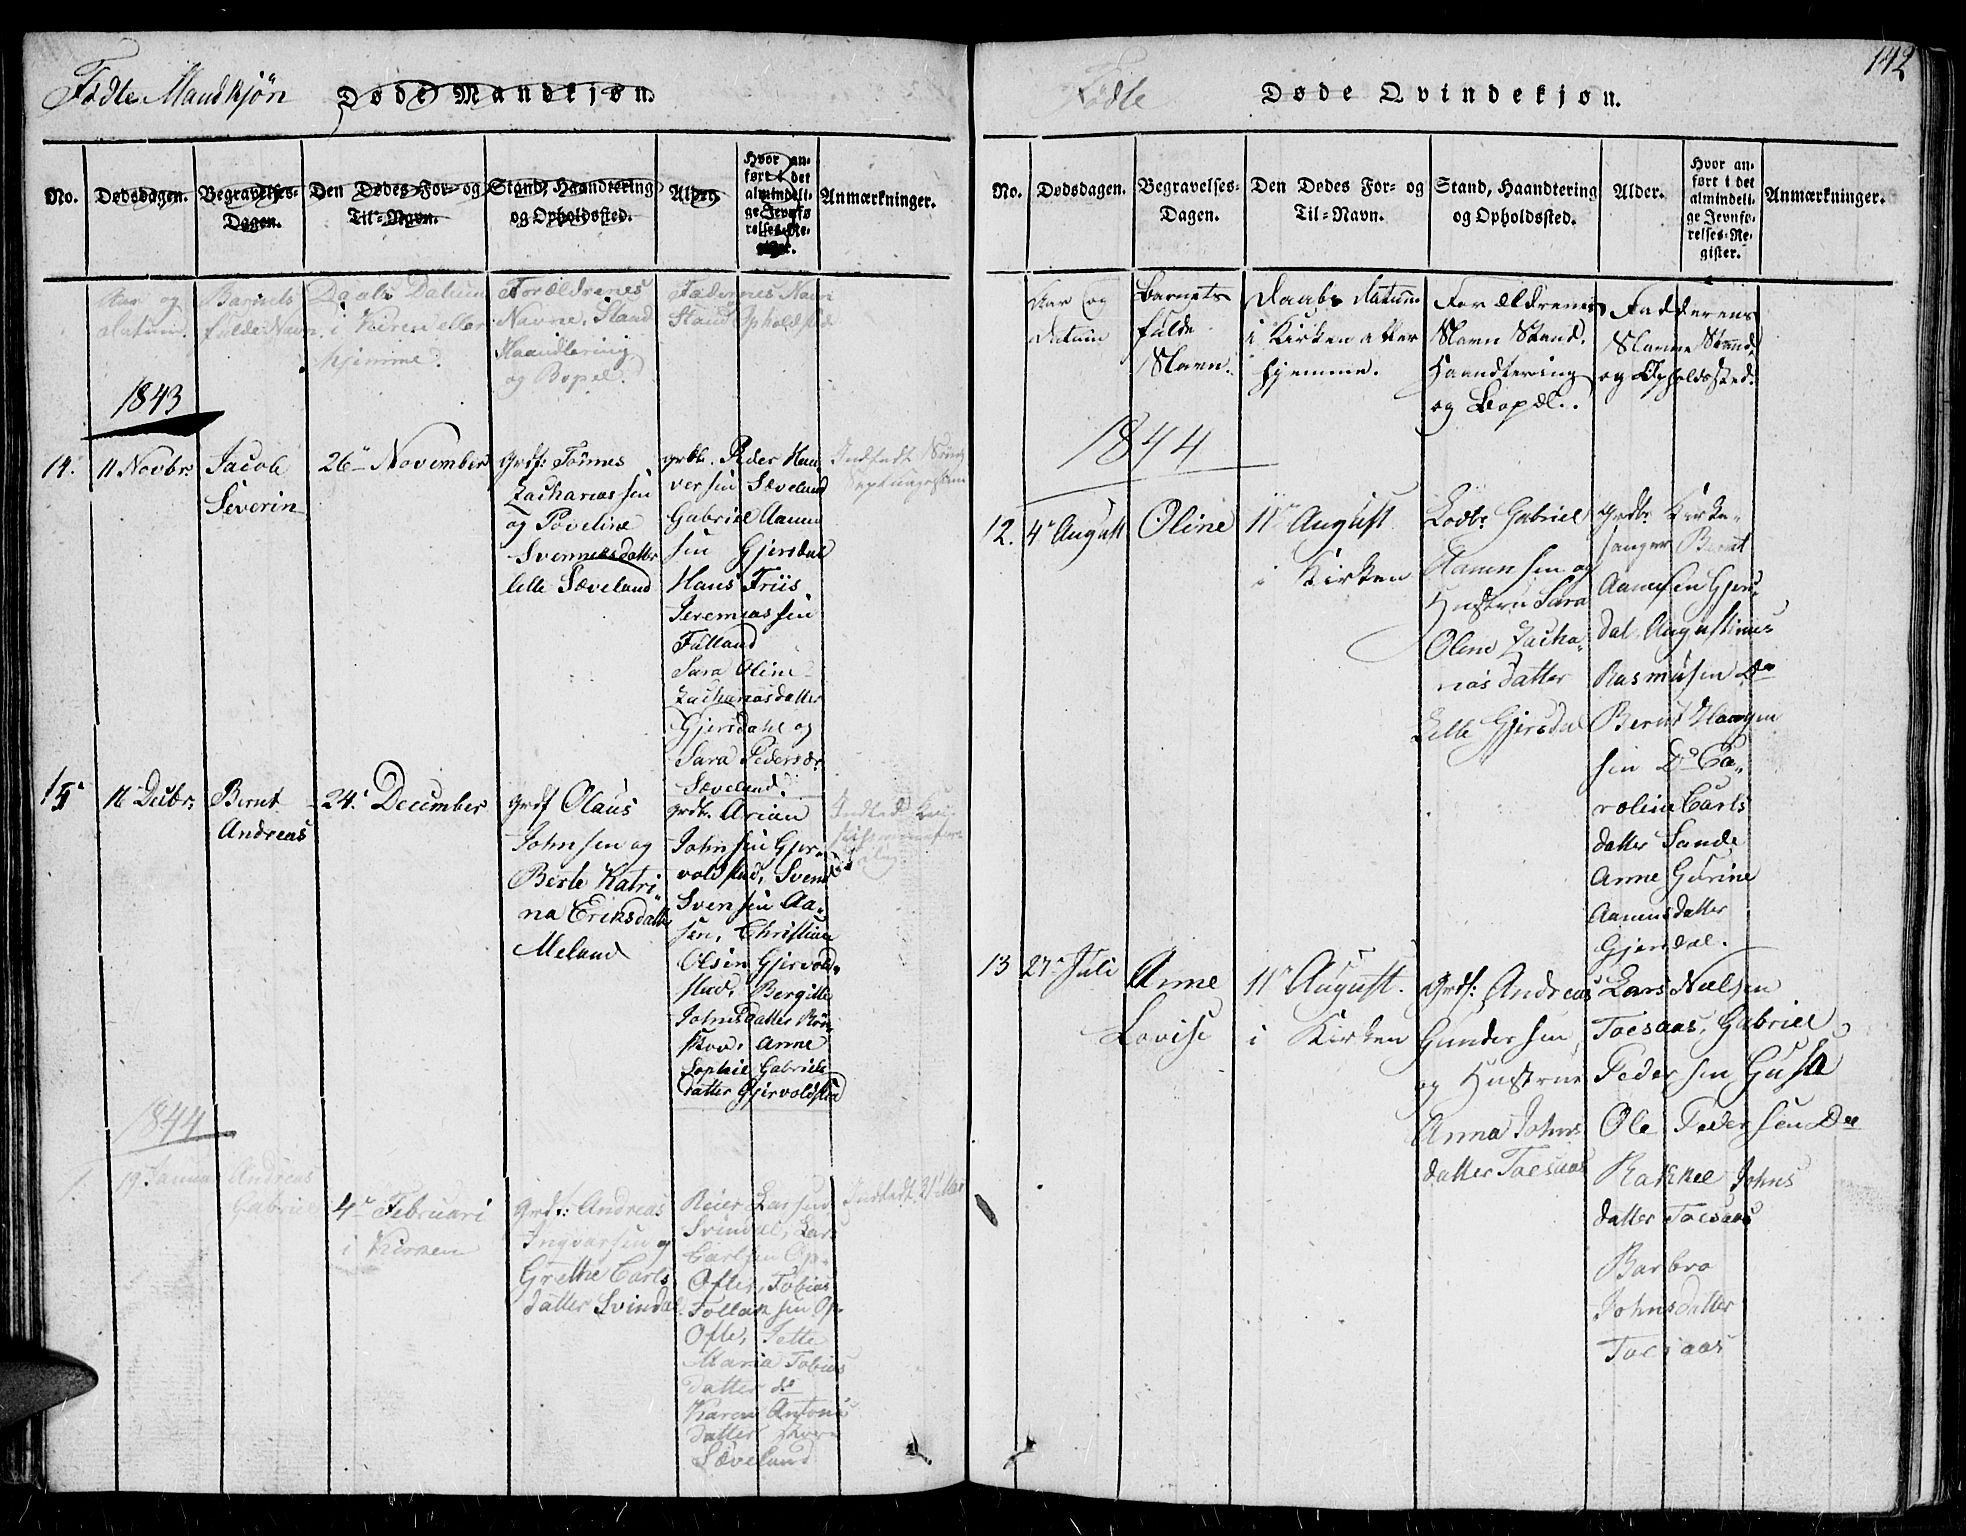 142
Fødte Mandkjøn Døde Mandkjøn.
No.
Dødsdagen.
Begravelses-
Dagen.
Den Dødes For- og
Til-Navn.
Stand, Haandtering
og Opholdssted.
Alder.
Hvor an-
ført i det
almindeli-
ge Jevnfø-
relses-Re-
gister.
Anmærkninger.
Aar og
datum.
Barnets
fulde Navn.
Daabs Datum
i Kirken eller
hjemme.
Forældrenes
Navne, Stand
Haandtering
og Bopel.
Fadernes Navn
Stand Opholdsted
1843
14.
11 Novbr:
Jacob
Severin
26de November
Grdf: Tönnes
Zachariassen
og Poveline
Svennesdatter
lille Sæveland
Grdbr. Peder Han
versen Sæveland
Gabriel Aanen
sen Gjersdal
Hans Friis
Jeremiassen
Fålland
Sara Oline
Zachariasdatter
Gjersdahl og
Sara Pedersdr
Sæveland.
Indtedt
Septuagesima
15
Decbr:
Bernt
Andreas
24. December
Grdf Olaus
Johnsen og
Berte Katri
na Eriksdatter
Meland
Grdbr. Arian
Johnsen Gjer-
voldstad, Svend
Svensen Aa-
sen, Christian
Olsen Gjervold-
stad, Bergitte
Johnsdatter Rön-
skov, Anne
Sophie Gabriels
datter Gjervoldstad
Indted
1844
1.
19 Januar
Andreas
Gabriel
4de Februari
i Kirken
Grdf: Andreas
Ingvarsen og
Grethe Carls
datter Svindal
Reier Larsen
Svindal, Lars
Carlsen Op-
Ofte, Tobias
Tollaksen Op-
Ofte, Jette
Maria Tobias
datter do
Karen Antoni
datter
Sæveland
Indtedt 31 Mar
Fødte Døde Qvindekjøn.
No.
Dødsdagen.
Begravelses-
Dagen.
Den Dødes For- og
Til-Navn.
Stand, Haandtering
og Opholdssted.
Alder.
Hvor an-
ført i det
almindeli-
ge Jevnfø-
relses-Re-
gister.
Anmærkninger.
Aar og
Datum
Barnets
fulde
Navn.
Daabs Datum
i Kirken eller
hjemme.
Forældrenes
Navn Stand.
Haandtering
og Bopæl.
Fadderens
Navne Stand,
og Opholdssted.
1844
12.
4de August
Oline
11te August
i Kirken
Lodbr Gabriel
Aanensen og
Hustru Sara
Oline Zacha
rias datter
Lille Gjersdal
Grdbr Kirke-
sanger Bernt
Aanensen Gjers-
dal. Augustinus
Rasmusen Do
Bernt Haagen
sen Do Ca-
roline Carls
datter Sande
Anne Gurine
Aanensdatter
Gjersdal.
13
27de Juli
Anne
Lovise
11te August.
i Kirken
Grdf: Andreas
Gundersen
og Hustrue
Anna Johns
datter Toesaas
Lars Nielsen
Toesaas, Gabriel
Pedersen Guså
Ole Pedersen Do
Rakkel Johns
datter Toesaas
Barbro
Johnsdatter
Toesaas